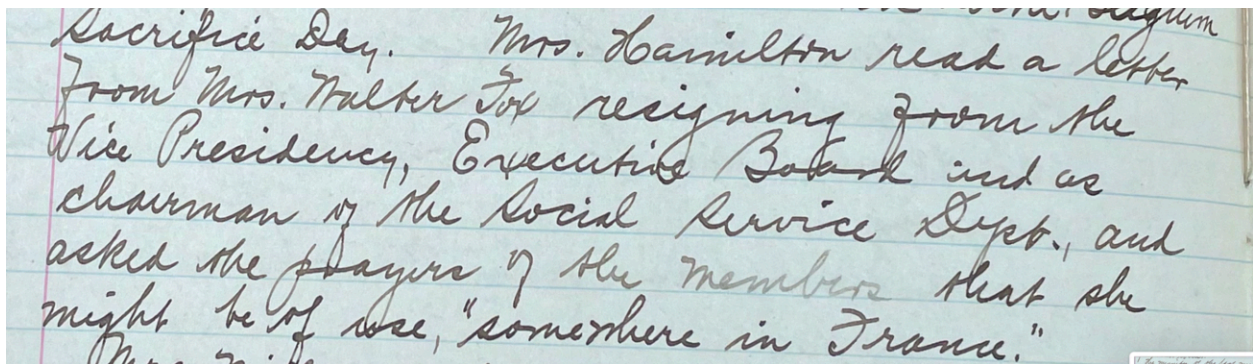 Sacrifice Day. Mrs. Hamilton read a letter
from Mrs. Walter Fox resigning from the
Vice Presidency, Executive Board and as
chairman of the Social Service Dept., and
asked the prayers of the members that she
might be of use, "somewhere in France."